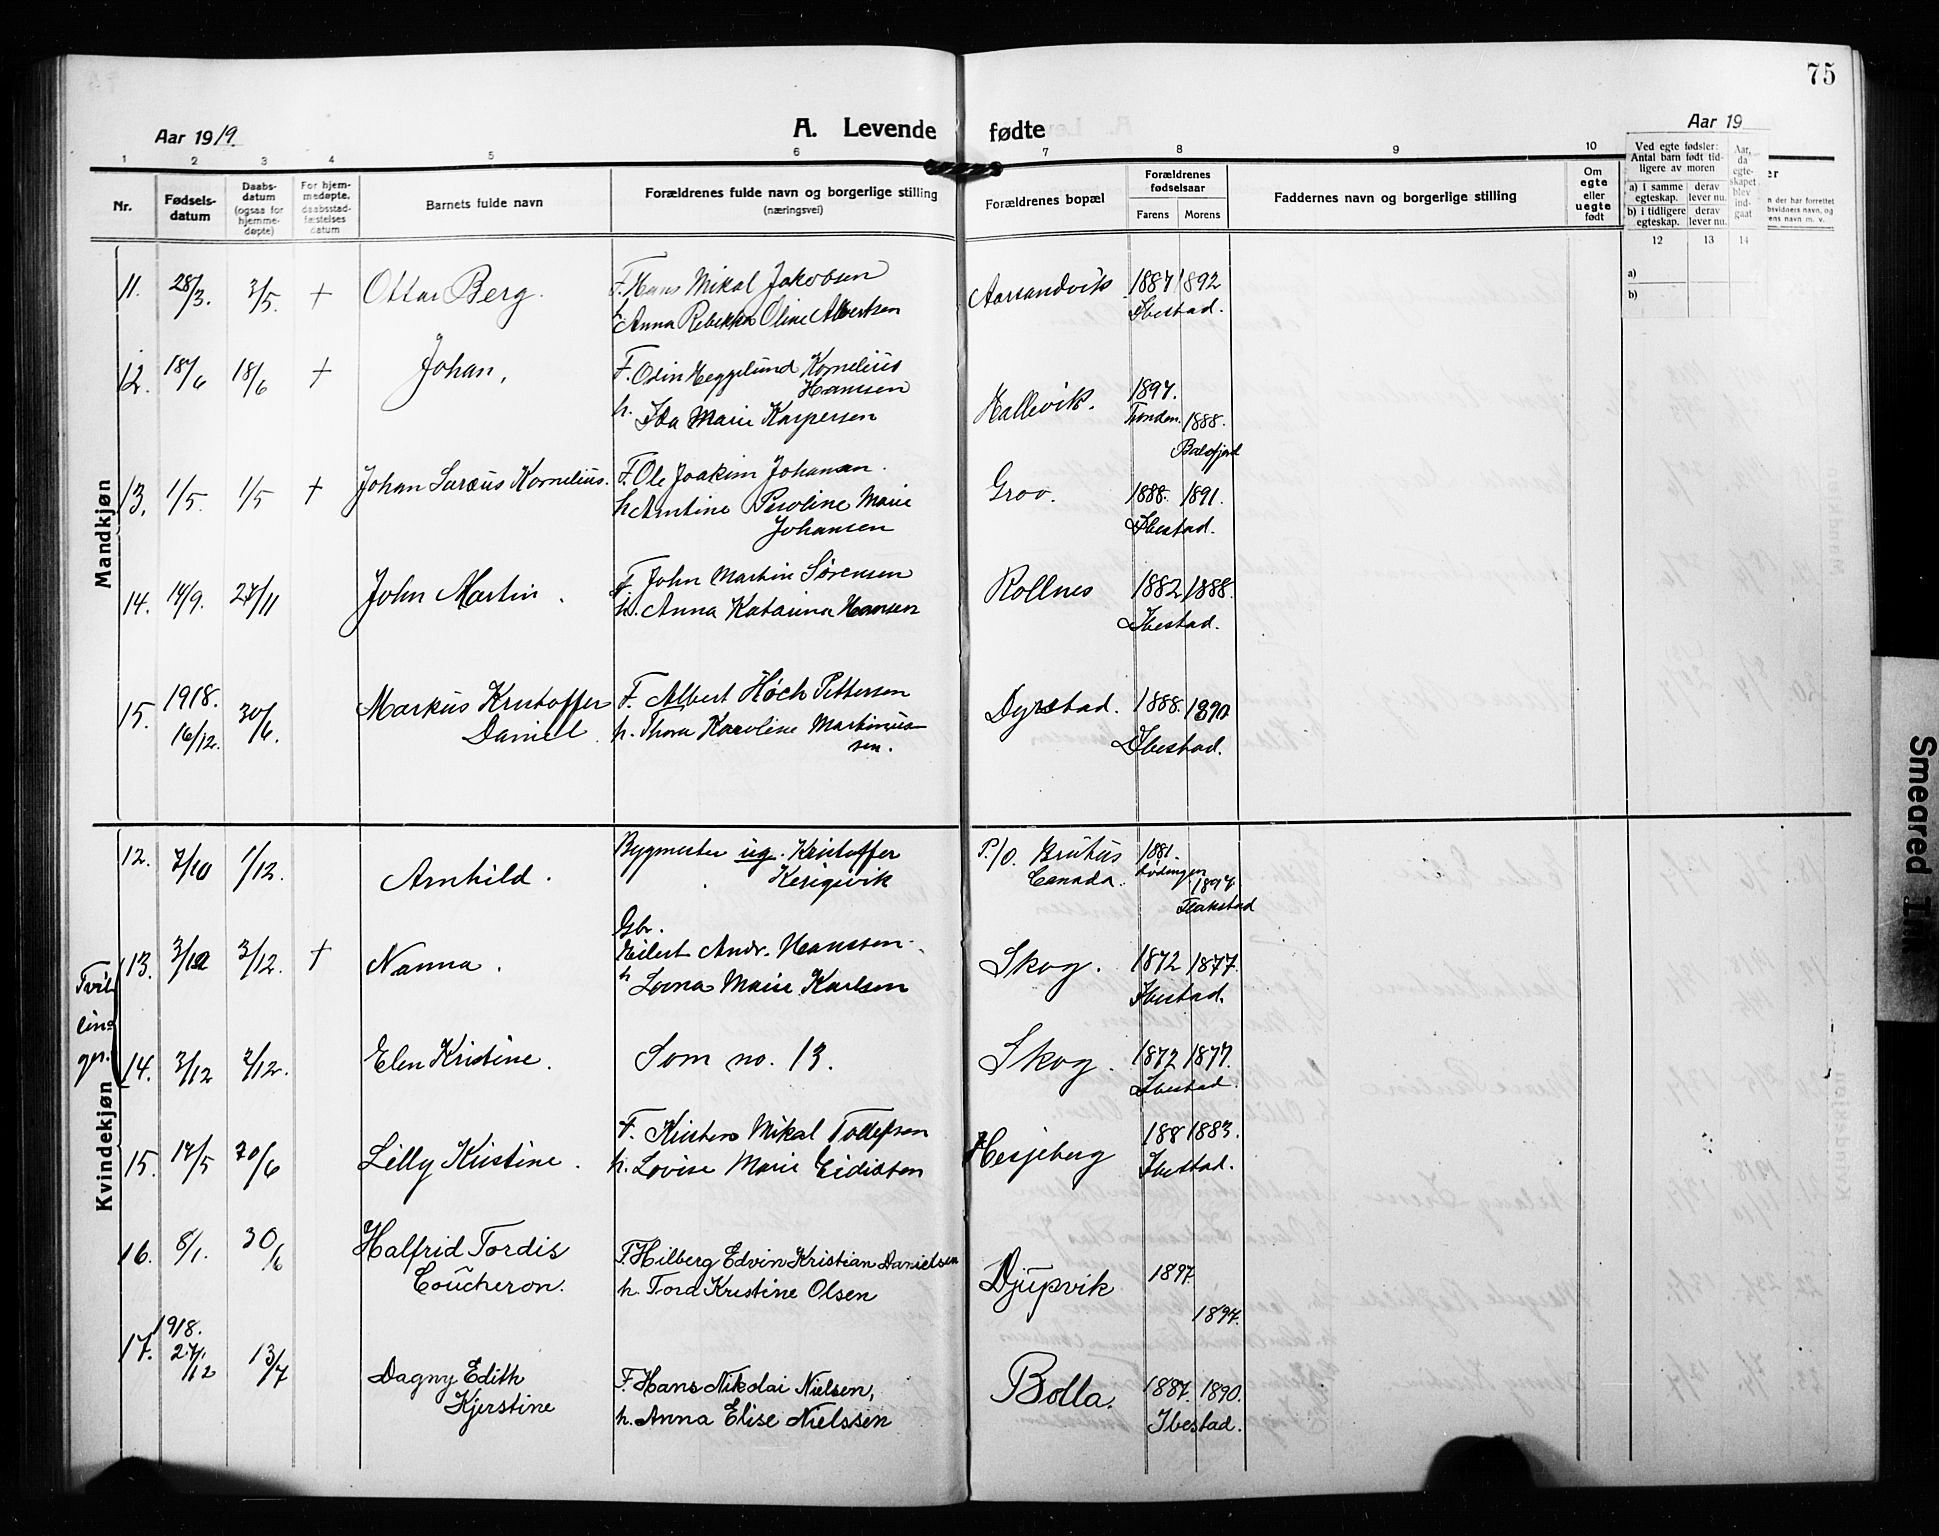 75
Aar 1919.
A. Levende fødte
Aar 19
1 2 3 4 5 6 7 8 9 10
Nr.
Fødsels-
datum
Daabs-
datum
(ogsaa for
hjemme-
døpte)
For hjem-
medøpte,
daabsstad-
fæstelses
datum
Barnets fulde navn
Forældrenes fulde navn og borgerlige stilling
(næringsvei)
Forældrenes bopæl
Forældrenes
fødselsaar
Farens Morens
Faddernes navn og borgerlige stilling
Om
egte
eller
uegte
født
Ved egte fødsler:
Antal barn født tid-
ligere av moren
a) i samme
egteskap.
derav
lever nu.
b) i tidligere
egteskap.
derav
lever nu.
Aar,
da
egte-
skapet
blev
ind-
gaat
12 13 14
a)
b)
Mandkjøn
11. 28/3. 3/5. + Ottar Berg. F. Hans Mikal Jakobsen Aarsandvik 1887 1892
h. Anna Rebekka Oline Albertsen Ibestad.
12. 18/6 18/6 + Johan, F. Odin Hegglund Kornelius
Hansen
h. Ida Marie Kaspersen Hallevik. 1897.
Tronden. 1888.
Balsfjord
13. 1/5. 1/5 + Johan Saræus Kornelius. F. Ole Joakim Johansen. Grov. 1888. 1891.
h. Arntine Peroline Marie
Johansen Ibestad.
14. 14/9. 27/11 John Martin. F. John Martin Sørensen Rollnes 1882 1888.
h. Anna Katarina Hansen Ibestad.
15. 1918.
16/12. 30/6. Markus Kristoffer
Daniel F. Albert Høch Pettersen Dyrstad. 1888. 1890
h. Thora Karoline Martinius-
sen. Ibestad.
Kvindekjøn
12. 7/10 1/12. Arnhild. Bygmester ug. Kristoffer
Kerigvik P./O. Brutus
Canada. 1881.
Lødingen
1897
Flakstad
Tvil-
lin-
ger.
13. 3/12 3/12. + Nanna. Gbr.
Eilert Andr. Hanssen. Skog. 1872 1877.
h. Lovna Marie Karlsen Ibestad.
14. 3/12 3/12. Elen Kristine. Som no. 13. Skog. 1872 1877.
Ibestad.
15. 14/5 20/6 Lilly Kristine. F. Kristen Mikal Tollefsen Hesjeberg 188 1883.
h. Lovise Marie Eidissen Ibestad.
16. 8/1. 30/6 Halfrid Tordis
Coucheron. F. Hilberg Edvin Kristian Danielsen Djupvik 1897
h. Tord Kristine Olsen 1897.
17. 1918.
27/12 13/7 Dagny Edith
Kjerstine F. Hans Nikolai Nielsen, Bolla. 1887. 1890.
h. Anna Elise Nielssen Ibestad.
Smeared Ink